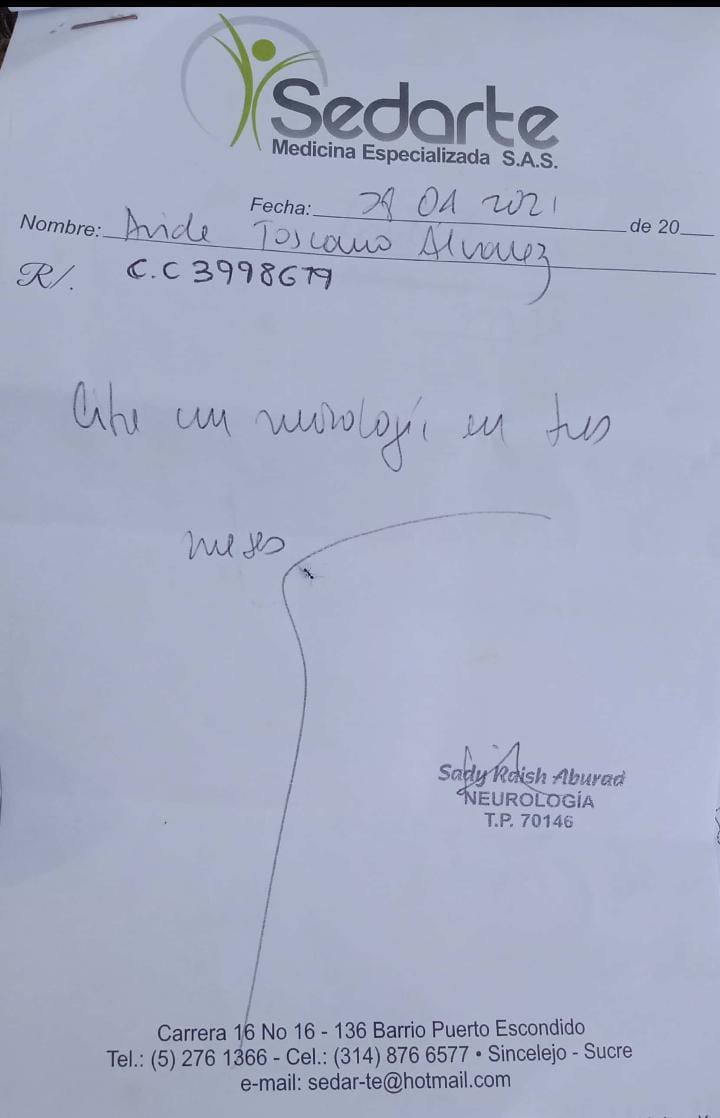 Sedarte
Medicina Especializada S.A.S.
Fecha: 28 01 2021 de 20
Nombre: Avide Toscano Alvarez
R/. C.C 3998679
Cita con neurología en tres
meses
Sady Raish Aburad
NEUROLOGÍA
T.P. 70146
Carrera 16 No 16 - 136 Barrio Puerto Escondido
Tel.: (5) 276 1366 - Cel.: (314) 876 6577 • Sincelejo - Sucre
e-mail: sedar-te@hotmail.com